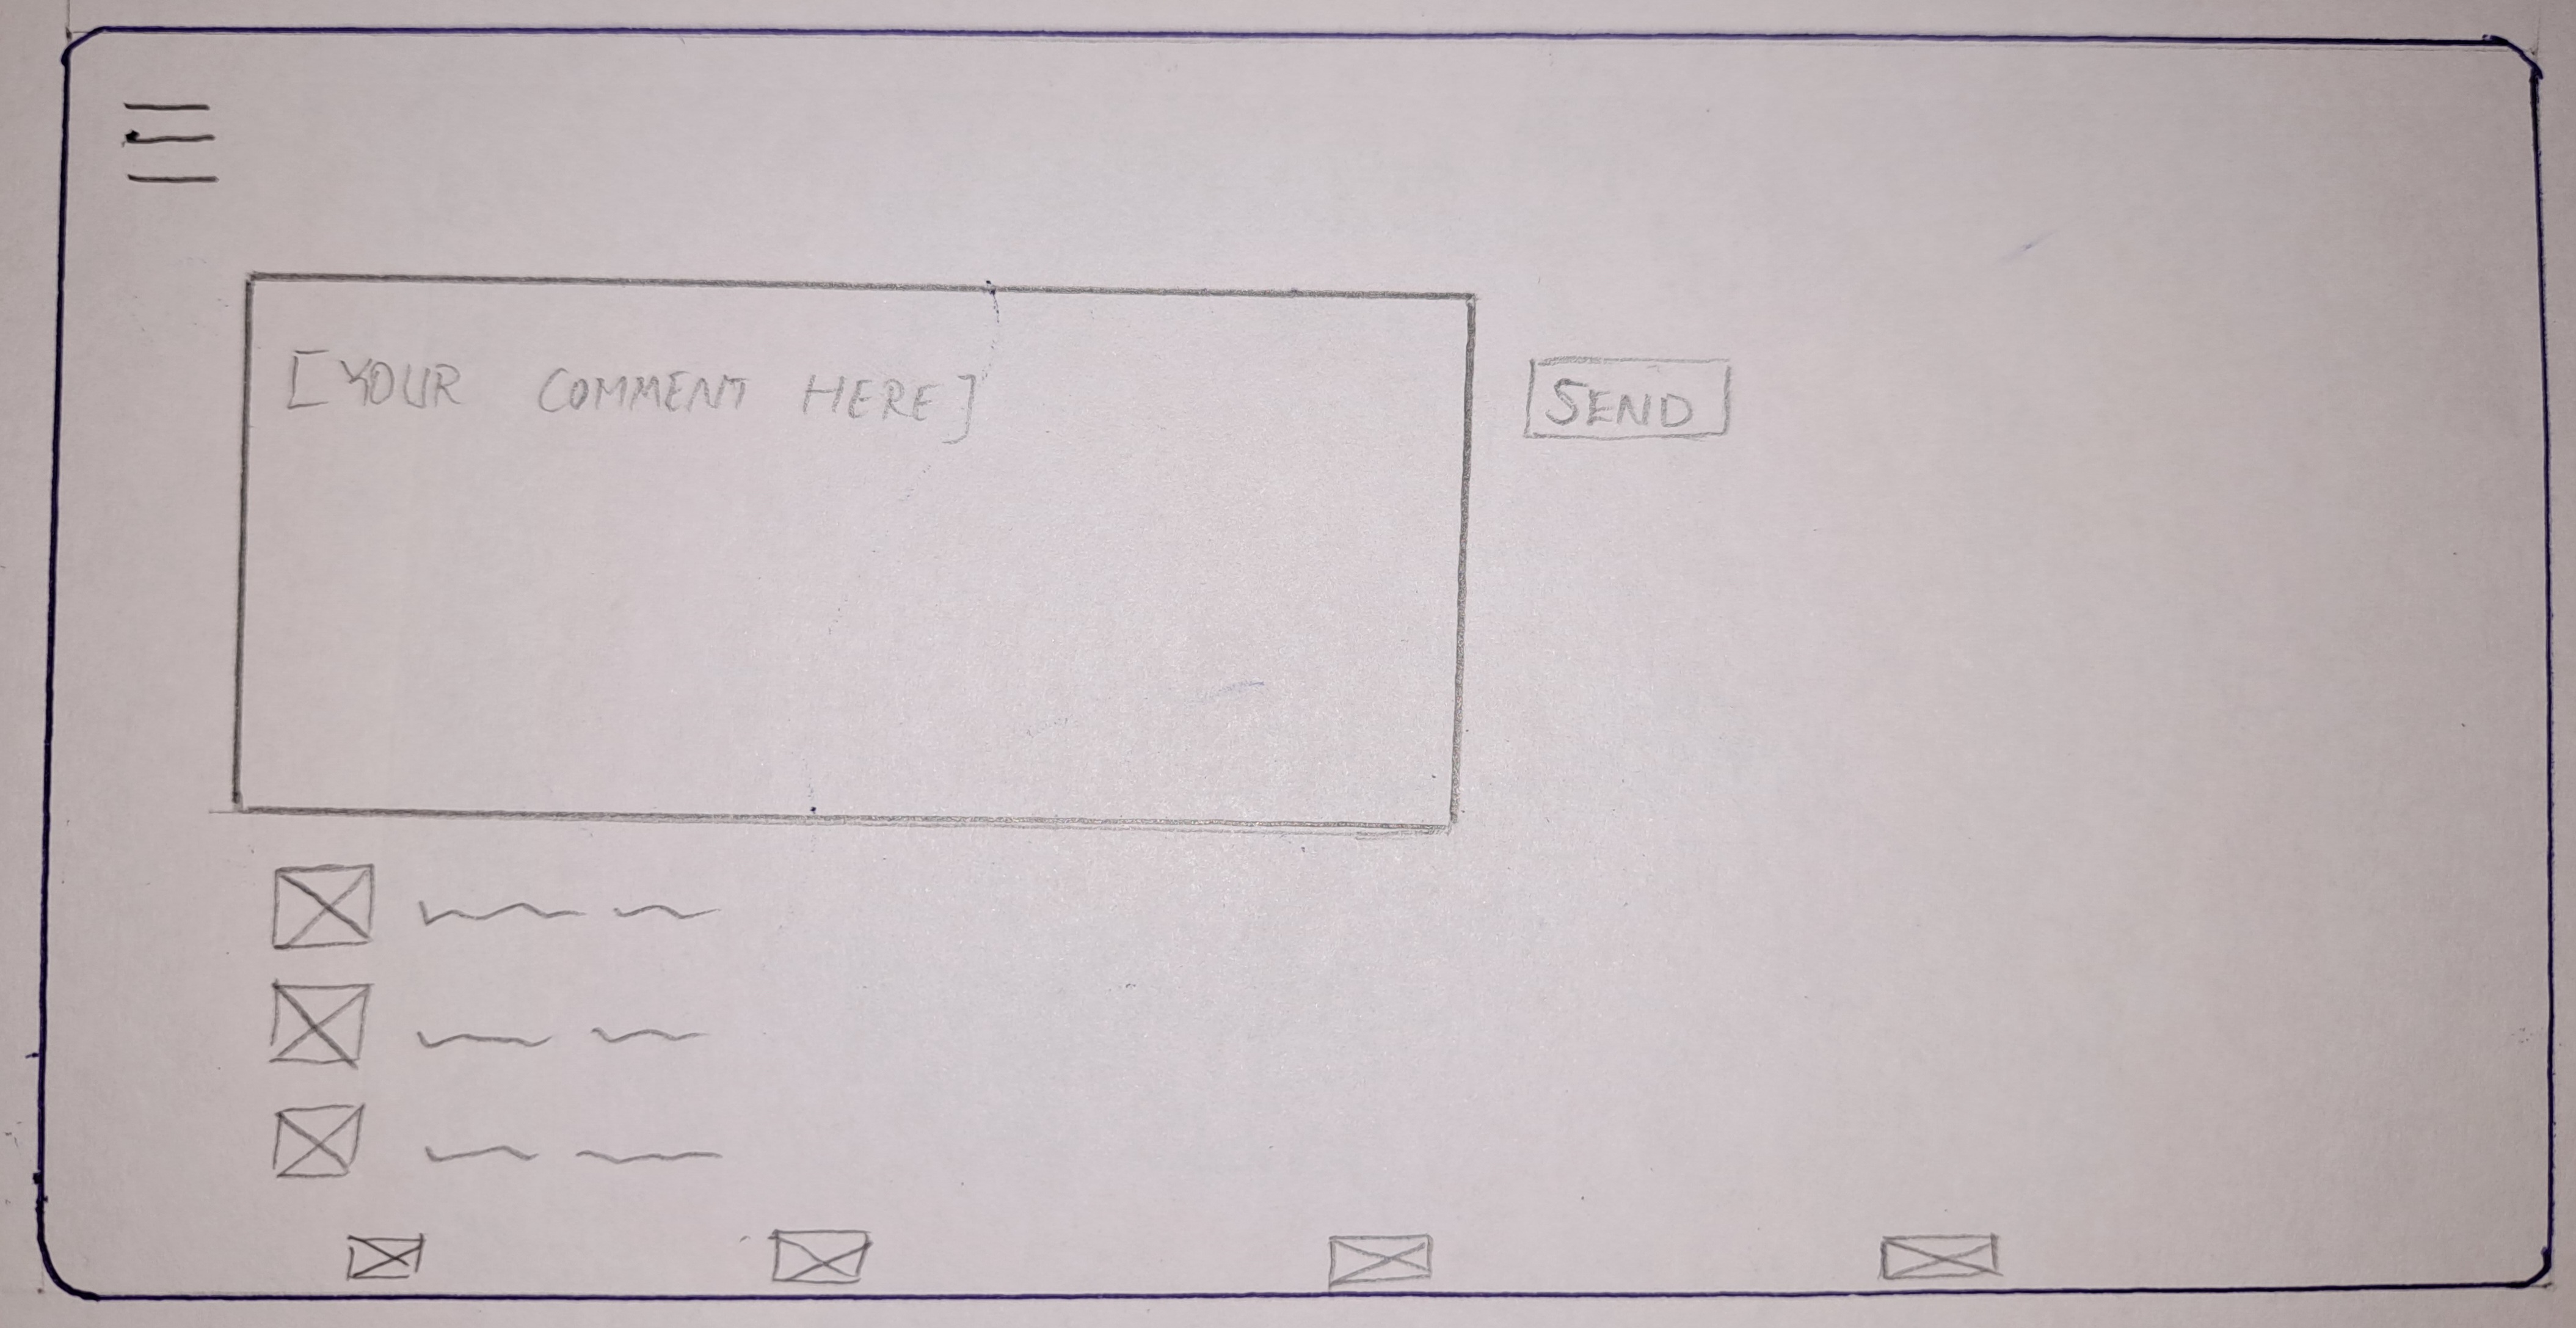 [YOUR COMMENT HERE]
SEND